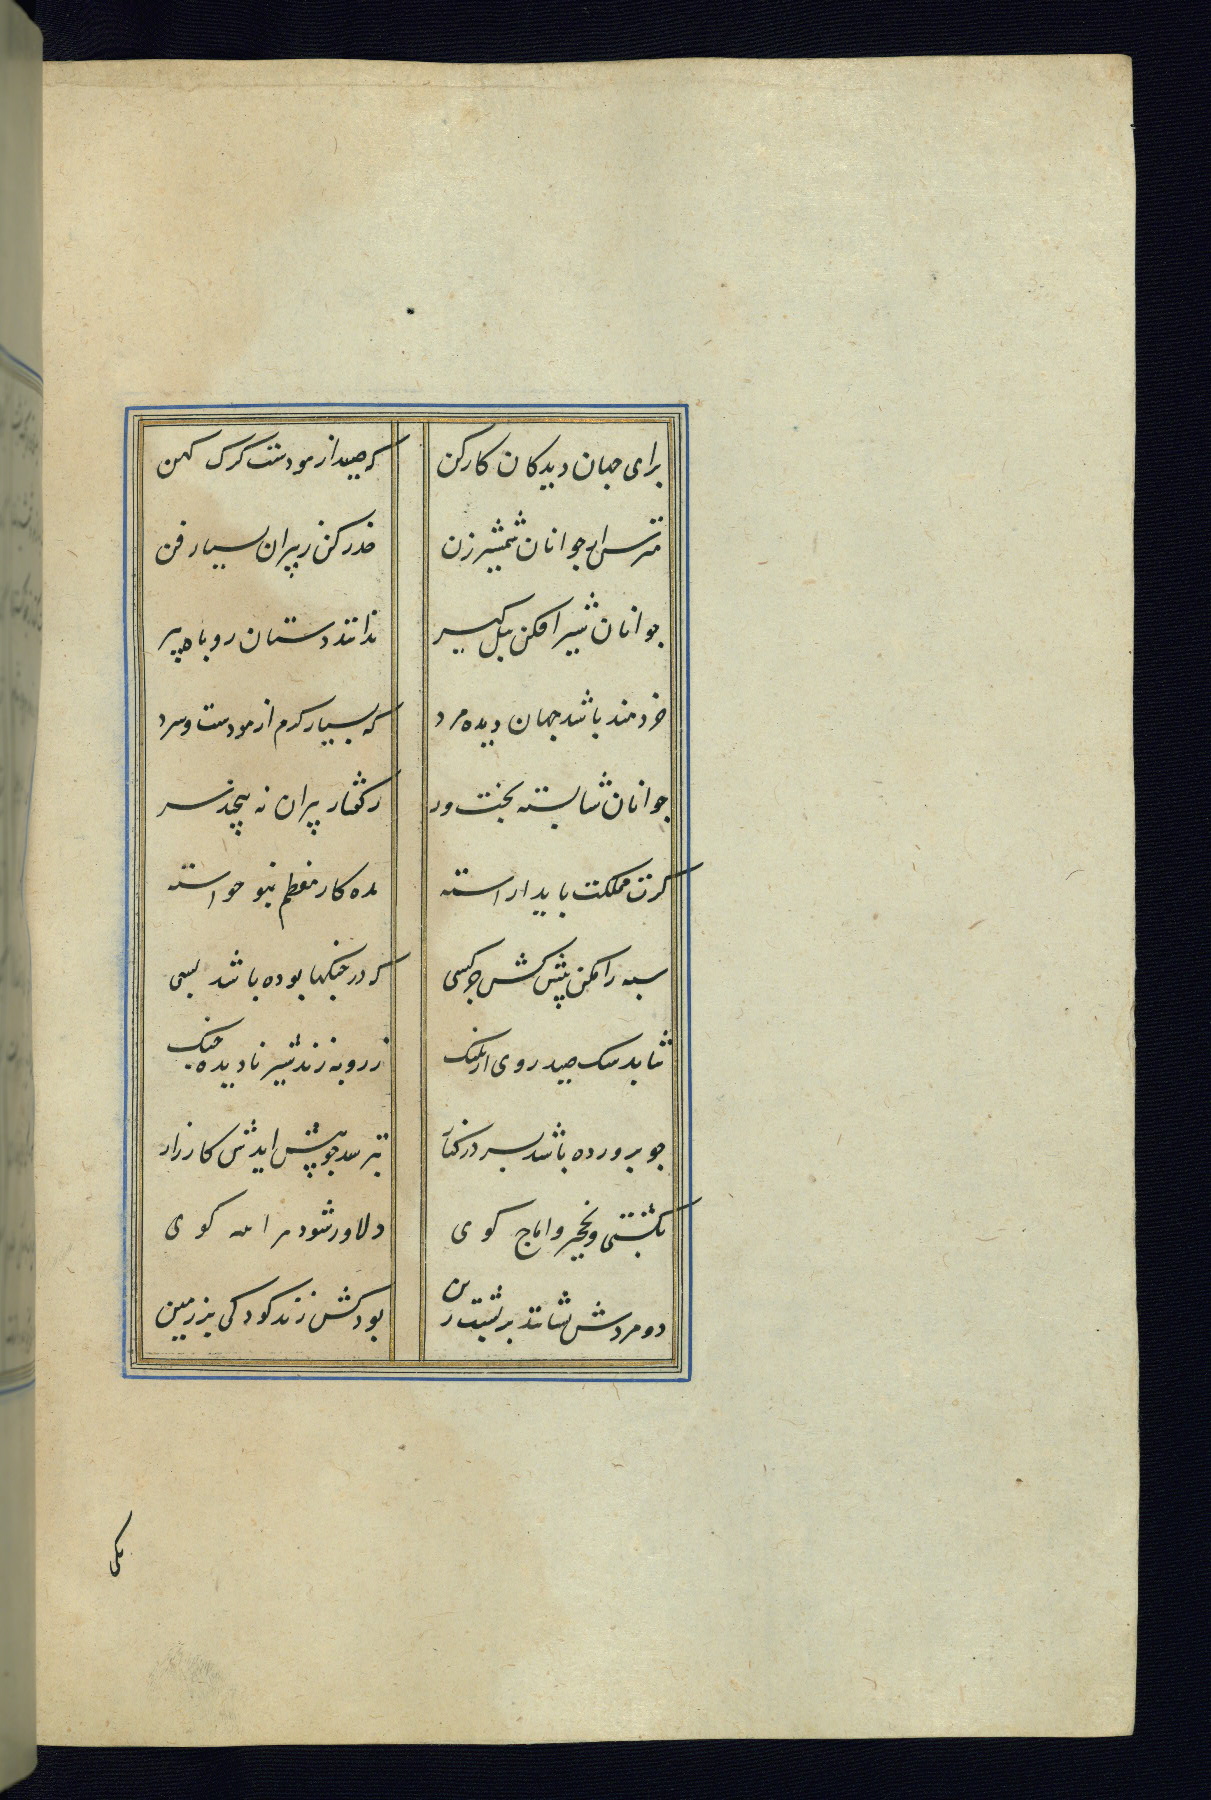 برای جهان دیدکان کار کن که صید ازمودست کرک کهن
مترس از جوانان شمشیر زن حذر کن ز پیران بسیار فن
جوانان شیر افکن پیل کیر ندانند دستان روباه پیر
خردمند باشد جهان دیده مرد که بسیار کرم ازمودست و سرد
جوانان شایسته بخت ور ز کفتار پیران نه پیچند سر
کرت مملکت باید اراسته مده کار معظم بنو خواسته
سپه را مکن پیش کش جز کسی که در جنکها بوده باشد بسی
نتابد سک صید روی از پلنک ز روبه زند شیر نادیده جنک
جو پرورده باشد پسر در کنار بترسد جو پیش ایدش کارزار
بکشتی و نخجیر و اماج کوی دلاور شود مرد کوی
دو مردش نشانند بر پشت زین بود کش زند کودکی بر زمین
یکی